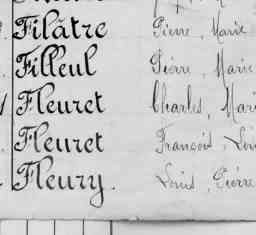 Filâtre Pierre, Marie
Filleul Pierre, Marie
Fleuret Charles, Mari
Fleuret François, Loui
Fleury. Louis, Pierre